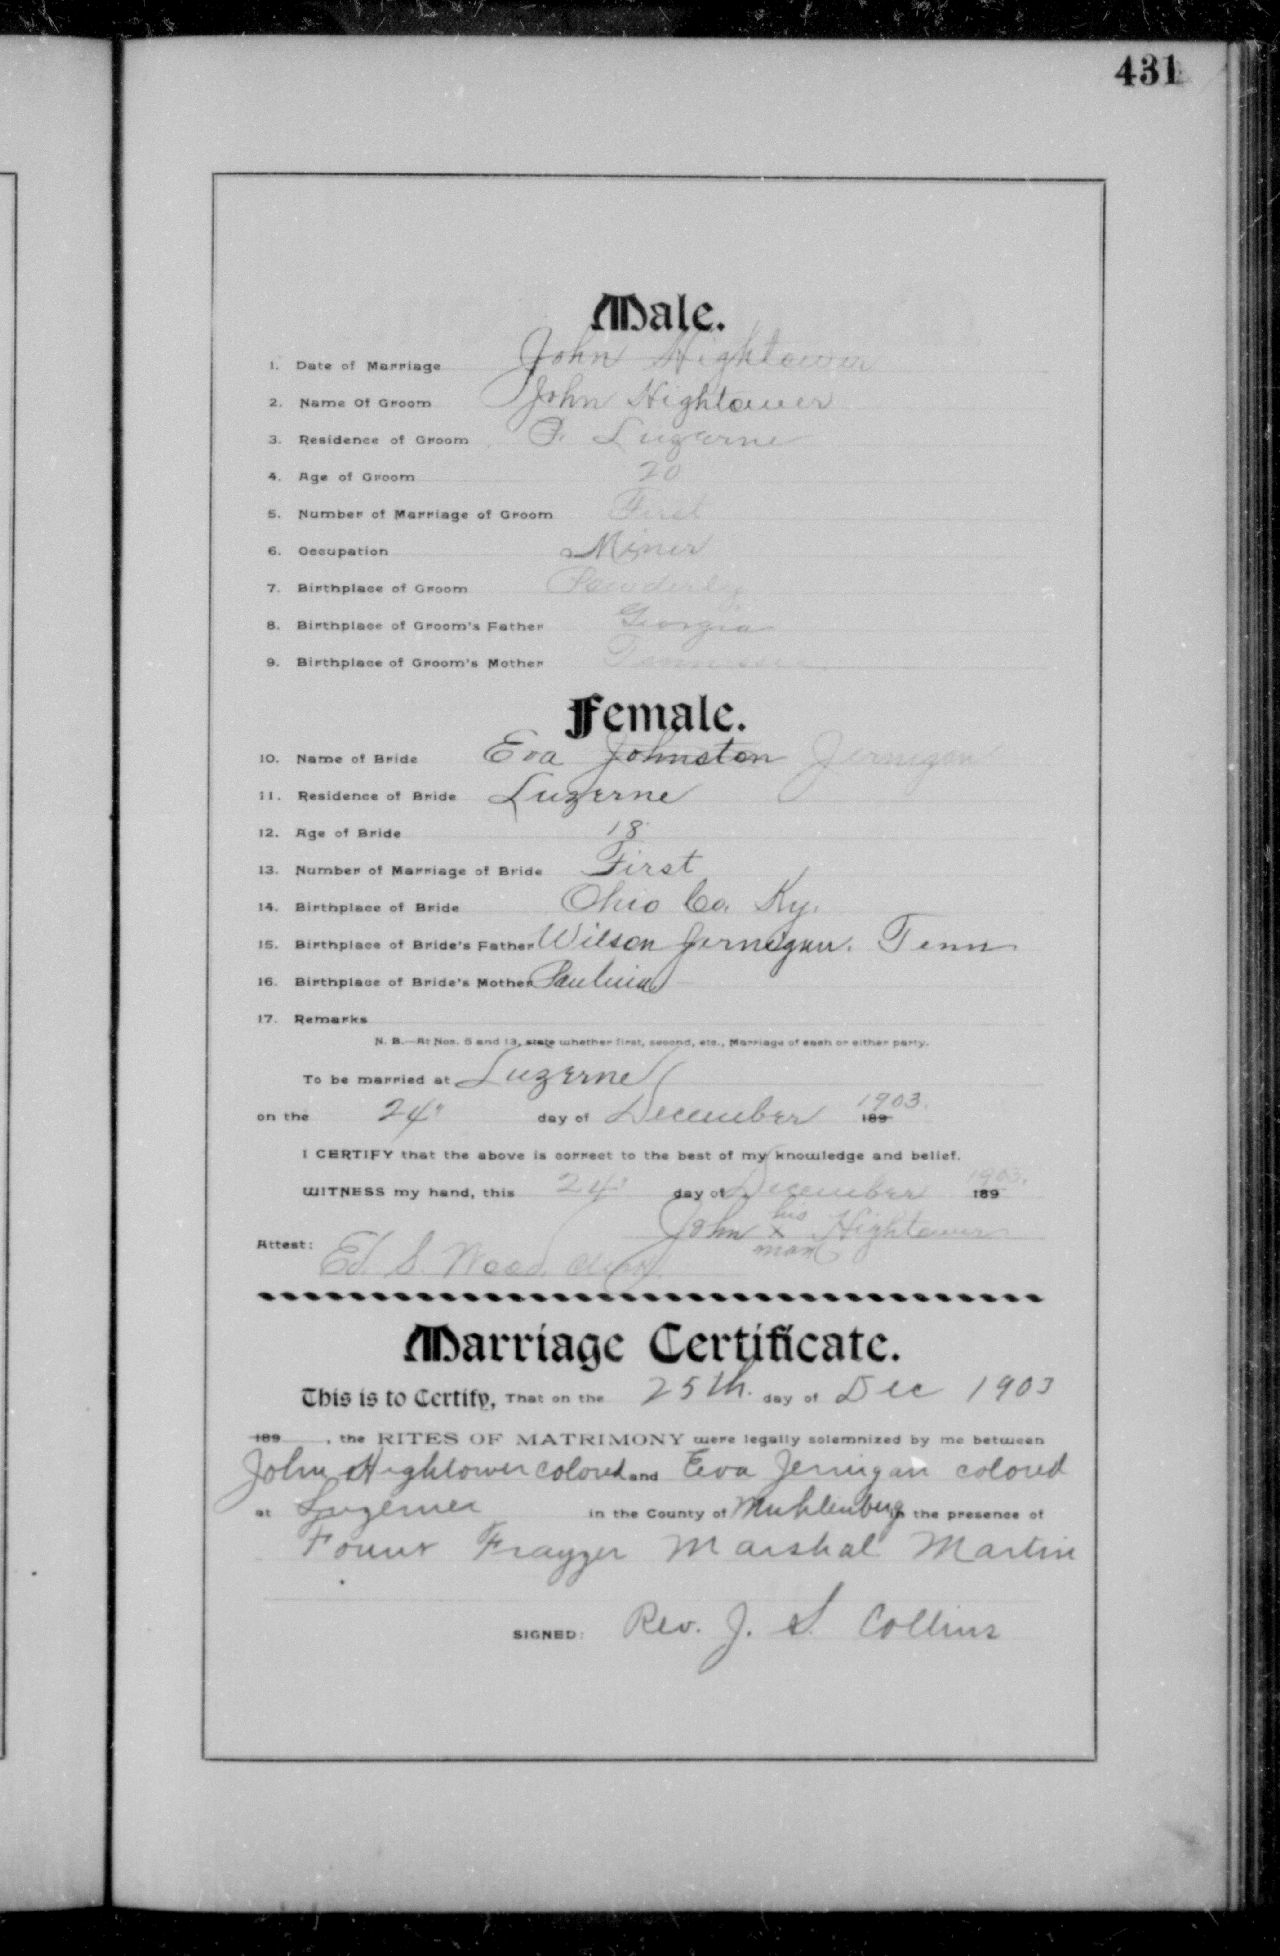 431
Male.
1. Date of Marriage John Hightower
2. Name Of Groom John Hightower
3. Residence of Groom Luzerne
4. Age of Groom 20
5. Number of Marriage of Groom First
6. Occupation Miner
7. Birthplace of Groom Powderly
8. Birthplace of Groom's Father Georgia
9. Birthplace of Groom's Mother Tennessee
Female.
10. Name of Bride Eva Johnston Jernigan
11. Residence of Bride Luzerne
12. Age of Bride 18
13. Number of Marriage of Bride First
14. Birthplace of Bride Ohio Co. Ky.
15. Birthplace of Bride's Father Wilson Jernigan. Tenn
16. Birthplace of Bride's Mother Paulina
17. Remarks
N. B.—At Nos. 5 and 13, state whether first, second, etc., Marriage of each or either party.
To be married at Luzerne
on the 24" day of December 189 1903.
I CERTIFY that the above is correct to the best of my knowledge and belief.
WITNESS my hand, this 24" day of December 189 1903.
John his x mark Hightower
Attest: Ed. S. Wood, Clerk
Marriage Certificate.
This is to Certify, That on the 25th. day of Dec 1903
189 , the RITES OF MATRIMONY were legally solemnized by me between
John Hightower colored and Eva Jernigan colored
at Luzerner in the County of Muhlenberg in the presence of
Frayzer Marshal Martin
SIGNED: Rev. J. S. Collins